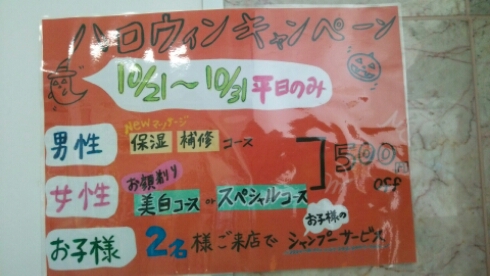 ハロウィンキャンペーン
10/21〜10/31 平日のみ
NEWマッサージ
男性 保湿 補修 コース
500円
お顔剃り
女性 美白コース or スペシャルコース
お子様の
お子様 2名様ご来店で シャンプーサービス